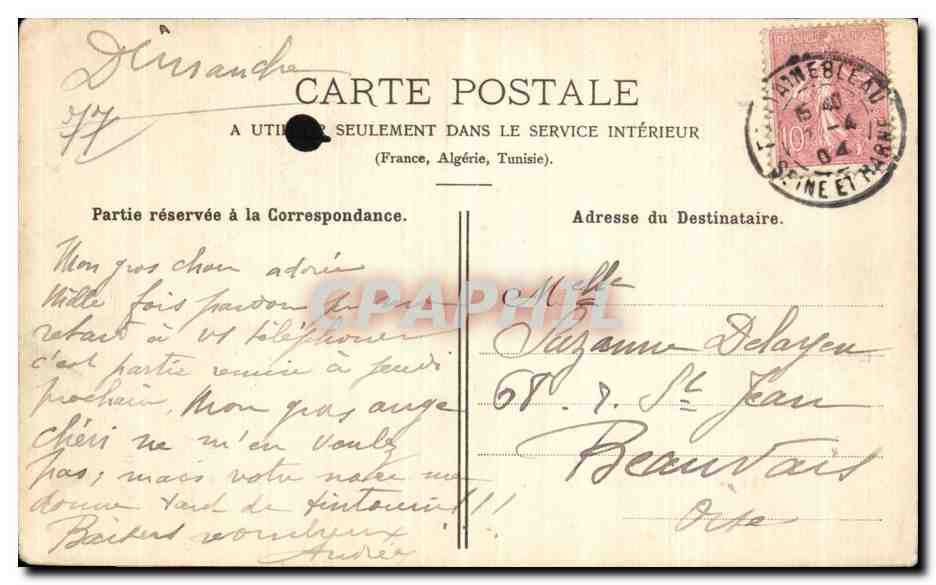 Dimanche
77
CARTE POSTALE
A UTI ER SEULEMENT DANS LE SERVICE INTÉRIEUR
(France, Algérie, Tunisie).
10
15 40
-4
04
SEINE ET MARNE
Partie réservée à la Correspondance.
Mon gros chou adorée
Mille fois pardon
retard à vs téléphoner
c'est partie remise à jeudi
prochain, Mon gros ange
chéri ne m'en voulez
pas; mais votre me
donne tant de tintouin!!!
Baisers nombreux
Andrée
Adresse du Destinataire.
Melle
Suzanne
68. r. St Jean
Beauvais
Oise
CPAPHIL